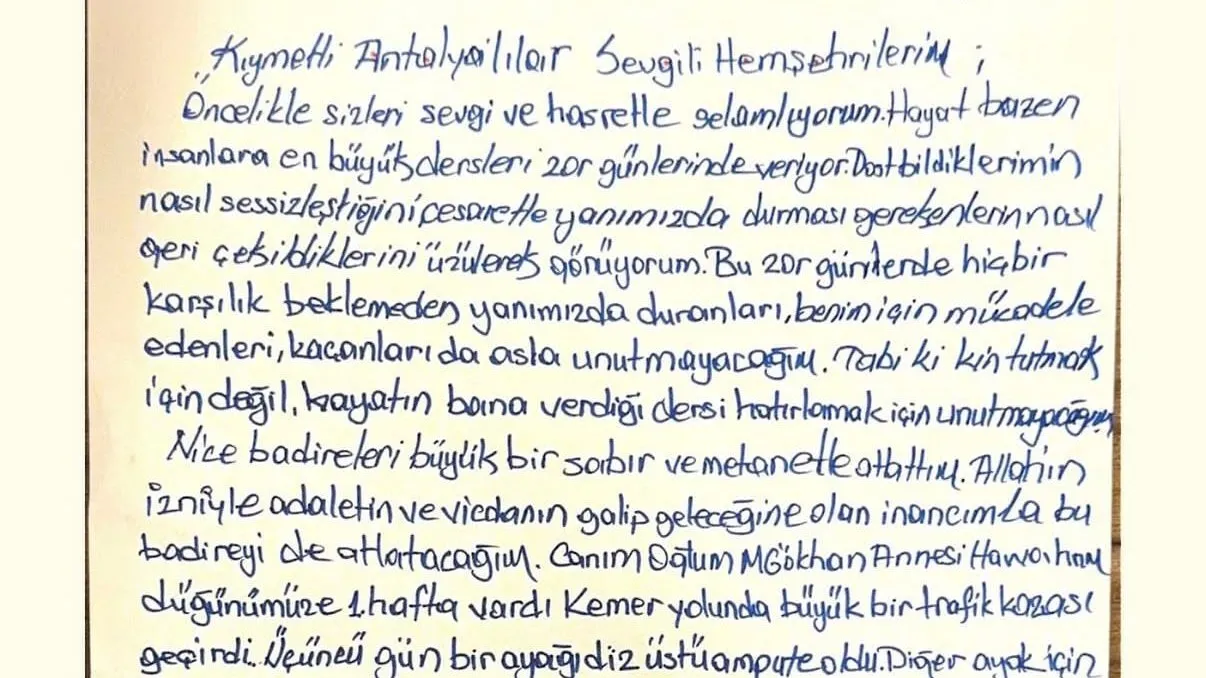 "Kıymetli Antalyalılar Sevgili Hemşehrilerim ;
Öncelikle sizleri sevgi ve hasretle selamlıyorum. Hayat bazen
insanlara en büyük dersleri zor günlerinde veriyor. Dost bildiklerimin
nasıl sessizleştiğini cesaretle yanımızda durması gerekenlerin nasıl
geri çekildiklerini üzülerek görüyorum. Bu zor günlerde hiçbir
karşılık beklemeden yanımızda duranları, benim için mücadele
edenleri, kaçanları da asla unutmayacağım. Tabi ki kin tutmak
için değil, hayatın bana verdiği dersi hatırlamak için unutmayacağım
Nice badireleri büyük bir sabır ve metanetle atlattım. Allahın
izniyle adaletin ve vicdanın galip geleceğine olan inancımla bu
badireyi de atlatacağım. Canım Oğlum M Gökhan Annesi Hava hnm
düğünümüze 1. hafta vardı Kemer yolunda büyük bir trafik kazası
geçirdi. Üçüncü gün bir ayağı diz üstü ampute oldu. Diğer ayak için